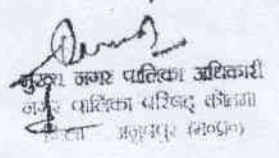 मुख्य नगर पालिका अधिकारी
नगर पालिका परिषद् कोतमा
जिला अनूपपुर (म०प्र०)